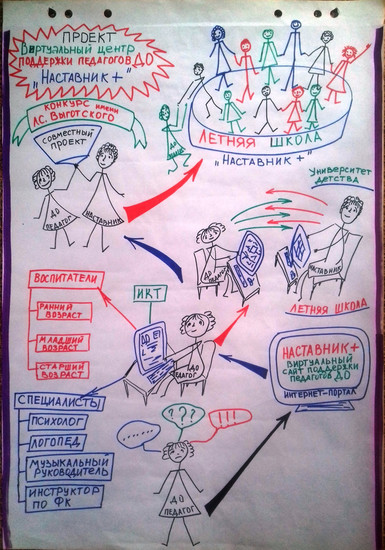 ПРОЕКТ
ВИРТУАЛЬНЫЙ ЦЕНТР
ПОДДЕРЖКИ ПЕДАГОГОВ ДО
„НАСТАВНИК+"
КОНКУРС ИМЕНИ
Л.С. ВЫГОТСКОГО
СОВМЕСТНЫЙ
ПРОЕКТ
ДО
ПЕДАГОГ
НАСТАВНИК
ЛЕТНЯЯ ШКОЛА
„НАСТАВНИК+"
УНИВЕРСИТЕТ
ДЕТСТВА
ДО
ПЕДАГОГ
НАСТАВНИК
ЛЕТНЯЯ ШКОЛА
ВОСПИТАТЕЛИ
РАННИЙ
ВОЗРАСТ
МЛАДШИЙ
ВОЗРАСТ
СТАРШИЙ
ВОЗРАСТ
ИКТ
ДО
ПЕДАГОГ
НАСТАВНИК+
ВИРТУАЛЬНЫЙ
САЙТ ПОДДЕРЖКИ
ПЕДАГОГОВ ДО
ИНТЕРНЕТ-ПОРТАЛ
СПЕЦИАЛИСТЫ
ПСИХОЛОГ
ЛОГОПЕД
МУЗЫКАЛЬНЫЙ
РУКОВОДИТЕЛЬ
ИНСТРУКТОР
ПО ФК
.......
???
!!!
ДО
ПЕДАГОГ